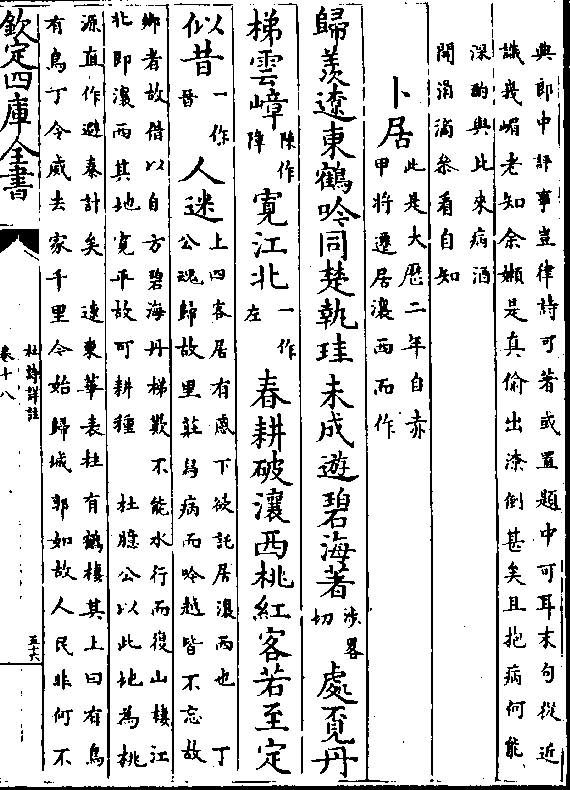 與郎中評事豈律詩可著或置題中可耳末句從近
識峩嵋老知余嬾是真偷出潦倒甚矣且抱病何能
深酌與此來病酒
開涓滴叅看自知
卜居
此是大歷二年自赤
甲將遷居瀼西而作
歸羨遼東鶴吟同楚執珪未成遊碧海著
涉畧
切
處覓丹
梯雲嶂
陳作
障
寛江北
一作
左
春耕破瀼西桃紅客若至定
似昔
一作
晉
人迷
上四客居有感下欲託居瀼西也 丁
公魂歸故里莊舄病而吟越皆不忘故
鄉者故借以自方碧海丹梯歎不能水行而復山棲江
北即瀼西其地寛平故可耕種 杜臆公以此地為桃
源直作避秦計矣 遼東華表柱有鶴棲其上曰有鳥
有鳥丁令威去家千里今始歸城郭如故人民非何不
欽定四庫全書
杜詩詳註
卷十八
五十六